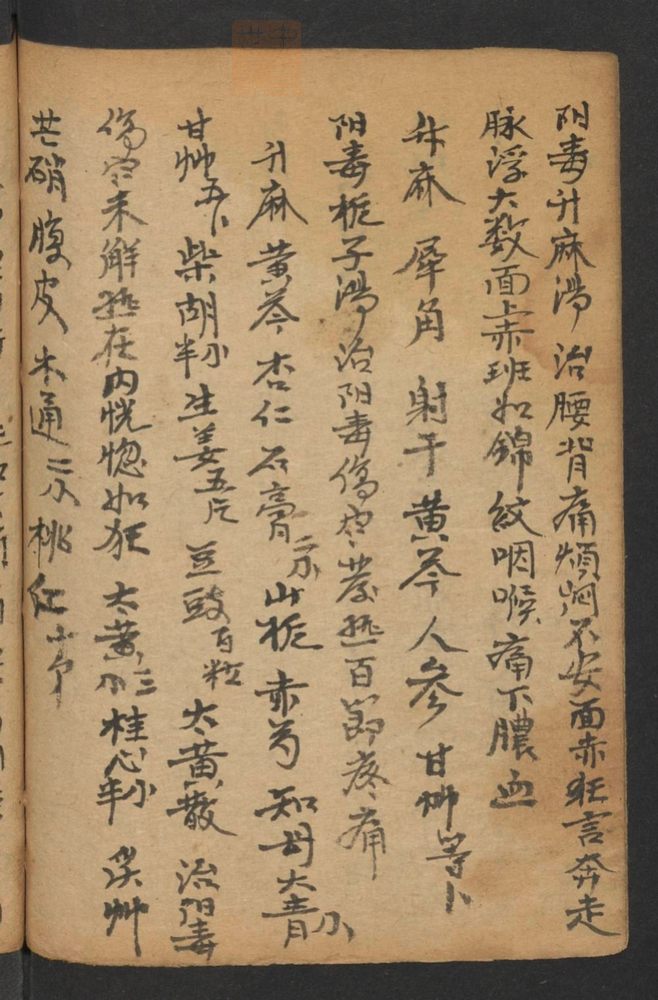 阳毒升麻湯 治腰背痛煩闷不安面赤狂言奔走
脉浮大数面上赤班如錦紋咽喉痛下膿血
升麻 犀角 射干 黄芩 人参 甘艸等卜
阳毒栀子湯治阳毒傷寒蒸热百節疼痛
升麻 黄芩 杏仁 石膏二分 山栀 赤芍 知母 大青小
甘艸五卜 柴胡半小 生姜五片 豆豉百粒 大黄散 治阳毒
傷寒未解热在内恍惚如狂 大黄小三 桂心半小 炙艸
芒硝 腹皮 木通二分 桃仁